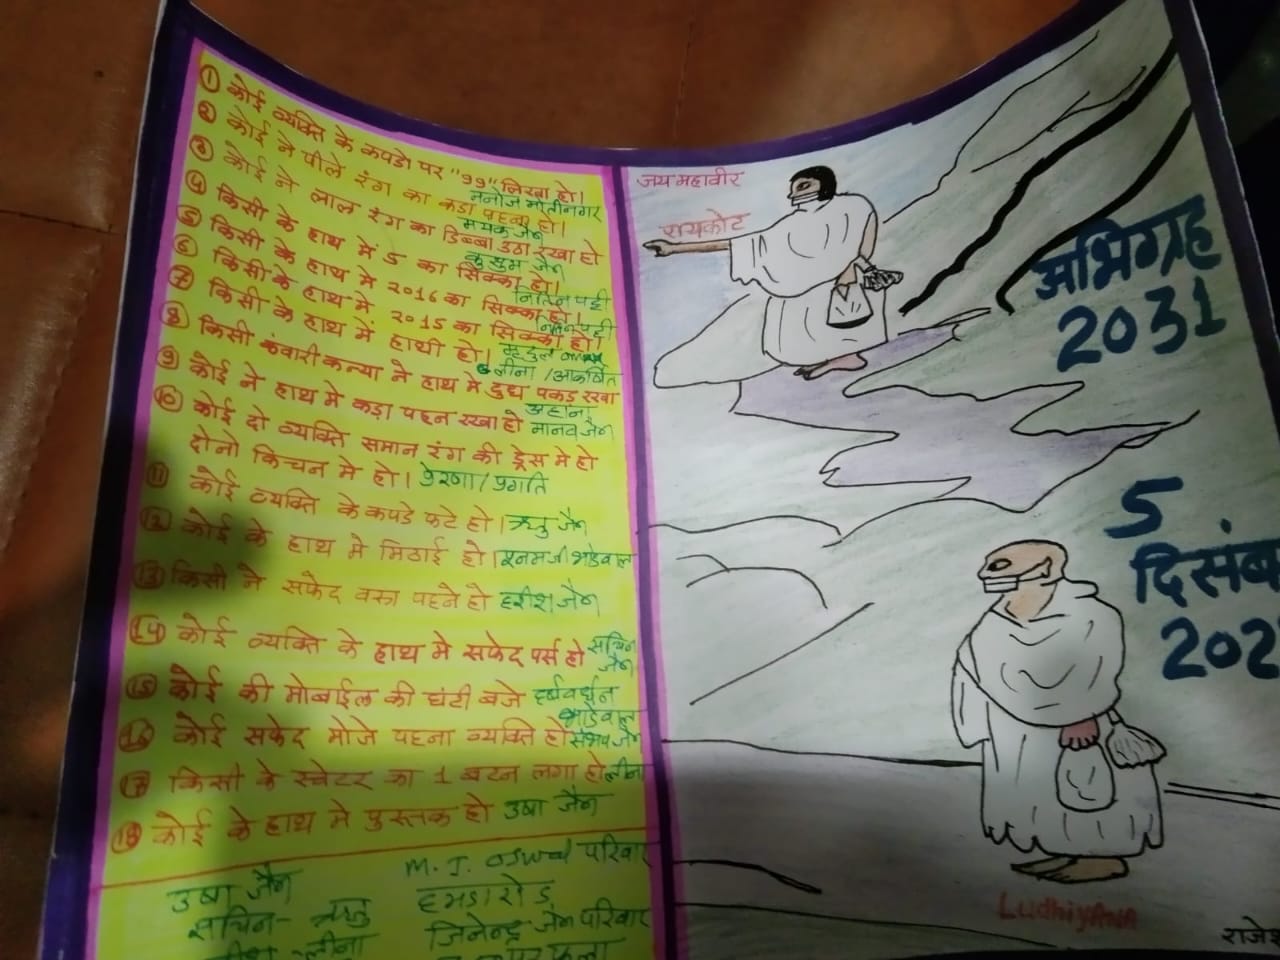 ① कोई व्यक्ति के कपडो पर "99" लिखा हो।
मनोज मोतीनगर
② कोई ने पीले रंग का कडा पहना हो।
मयंक जैन
③ कोई ने लाल रंग का डिब्बा उठा रखा हो
कुसुम जैन
④ किसी के हाथ मे 5 का सिक्का हो।
नितिन पट्टी
⑤ किसी के हाथ मे 2016 का सिक्का हो।
पट्टी
⑥ किसी के हाथ मे 2015 का सिक्का हो।
⑦ किसी के हाथ में हाथी हो।
लीना / आकर्षित
⑧ किसी कंवारी कन्या ने हाथ मे दुध पकड रखा
अहाना
⑨ कोई ने हाथ मे कडा पहन रखा हो मानव जैन
⑩ कोई दो व्यक्ति समान रंग की ड्रेस मे हो
दोनो किचन मे हो। प्रेरणा / प्रगति
⑪ कोई व्यक्ति के कपडे फटे हो। ऋतु जैन
⑫ कोई के हाथ मे मिठाई हो।
⑬ किसी ने सफेद वस्त्र पहने हो हरीश जैन
⑭ कोई व्यक्ति के हाथ मे सफेद पर्स हो सचिन
जैन
⑮ कोई की मोबाईल की घंटी बजे हर्षवर्धन
⑯ कोई सफेद मोजे पहना व्यक्ति हो जैन
⑰ किसी के स्वेटर का 1 बटन लगा हो लीना
⑱ कोई के हाथ मे पुस्तक हो उषा जैन
उषा जैन
सचिन - ऋतु
लीना
M. J. Oswal परिवार
जिनेन्द्र जैन परिवार
जय महावीर
रायकोट
अभिग्रह
2031
5
दिसंब
202
LudhiyAnA
राजे